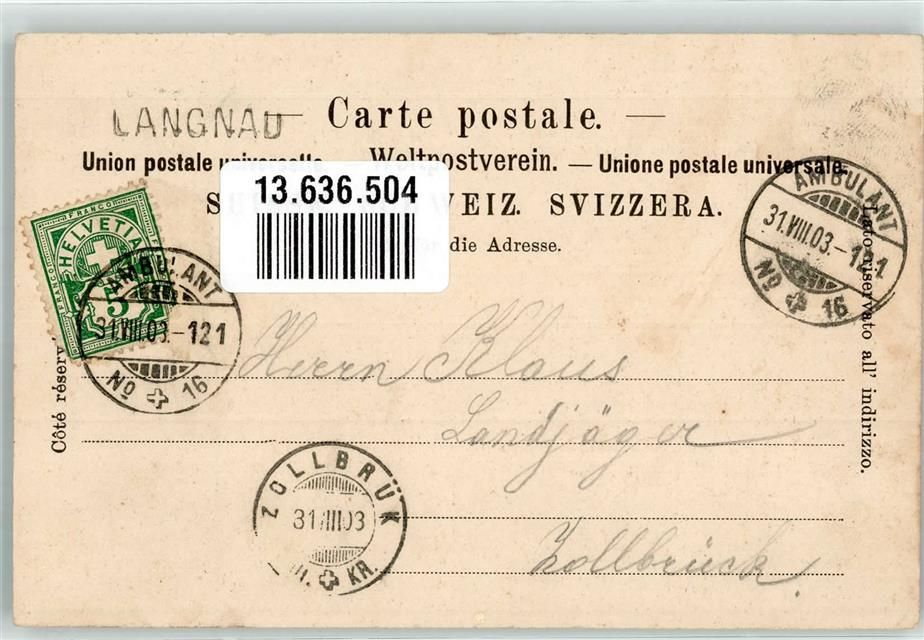 LANGNAU
— Carte postale. —
Union postale universelle. Weltpostverein. — Unione postale universale.
13.636.504
WEIZ. SVIZZERA.
für die Adresse.
FRANCO
HELVETIA
FRANCO
5
AMBULANT
31.VIII.03.-121
No 16
AMBULANT
31.VIII.03.-121
No 16
Côté réserv
Lato riservato all' indirizzo.
Herrn Klaus
Landjäger
Zollbrück
ZOLLBRÜK
31 VIII 03
KR.